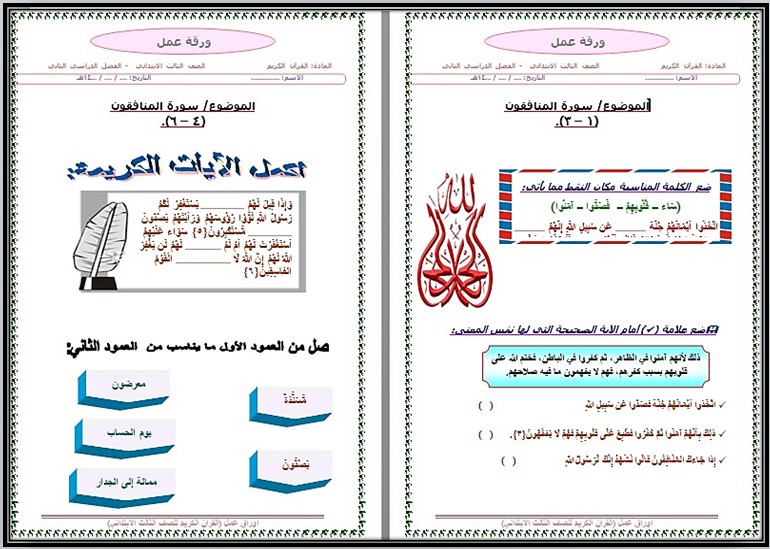 ورقة عمل
المادة: القرآن الكريم الصف الثالث الابتدائي - الفصل الدراسي الثاني
الاسم: .............. التاريخ: .... / .... /...١٤هـ
الموضوع/ سورة المنافقون
(١ – ٣).
ضع الكلمة المناسبة مكان النقط مما يأتي:
(سَاءَ – قُلُوبِهِمْ – فَصَدُّوا – آمَنُوا)
اتَّخَذُوا أَيْمَانَهُمْ جُنَّةً ______ عَن سَبِيلِ اللَّهِ إِنَّهُمْ ______
الله
ضع علامة (✓) أمام الآية الصحيحة التي لها نفس المعنى:
ذلك لأنهم آمنوا في الظاهر، ثم كفروا في الباطن، فختم الله على
قلوبهم بسبب كفرهم، فهم لا يفهمون ما فيه صلاحهم.
✓ اتَّخَذُوا أَيْمَانَهُمْ جُنَّةً فَصَدُّوا عَن سَبِيلِ اللَّهِ ( )
✓ ذَلِكَ بِأَنَّهُمْ آمَنُوا ثُمَّ كَفَرُوا فَطُبِعَ عَلَى قُلُوبِهِمْ فَهُمْ لَا يَفْقَهُونَ{٣}. ( )
✓ إِذَا جَاءَكَ الْمُنَافِقُونَ قَالُوا نَشْهَدُ إِنَّكَ لَرَسُولُ اللَّهِ ( )
أوراق عمل (القرآن الكريم للصف الثالث الابتدائي)
ورقة عمل
المادة: القرآن الكريم الصف الثالث الابتدائي - الفصل الدراسي الثاني
الاسم: .............. التاريخ: .... / .... /...١٤هـ
الموضوع/ سورة المنافقون
(٤ – ٦).
أكمل الآيات الكريمة:
وَإِذَا قِيلَ لَهُمْ ________ يَسْتَغْفِرْ لَكُمْ
رَسُولُ اللَّهِ لَوَّوْا رُؤُوسَهُمْ وَرَأَيْتَهُمْ يَصُدُّونَ
________ مُّسْتَكْبِرُونَ{٥} سَوَاءٌ عَلَيْهِمْ
أَسْتَغْفَرْتَ لَهُمْ أَمْ لَمْ ______ لَهُمْ لَن يَغْفِرَ
اللَّهُ لَهُمْ إِنَّ اللَّهَ لَا ________ الْقَوْمَ
الْفَاسِقِينَ{٦}
صل من العمود الأول ما يناسب من العمود الثاني:
مُّسَنَّدَةٌ
يَصُدُّونَ
معرضون
يوم الحساب
ممالة إلى الجدار
أوراق عمل (القرآن الكريم للصف الثالث الابتدائي)